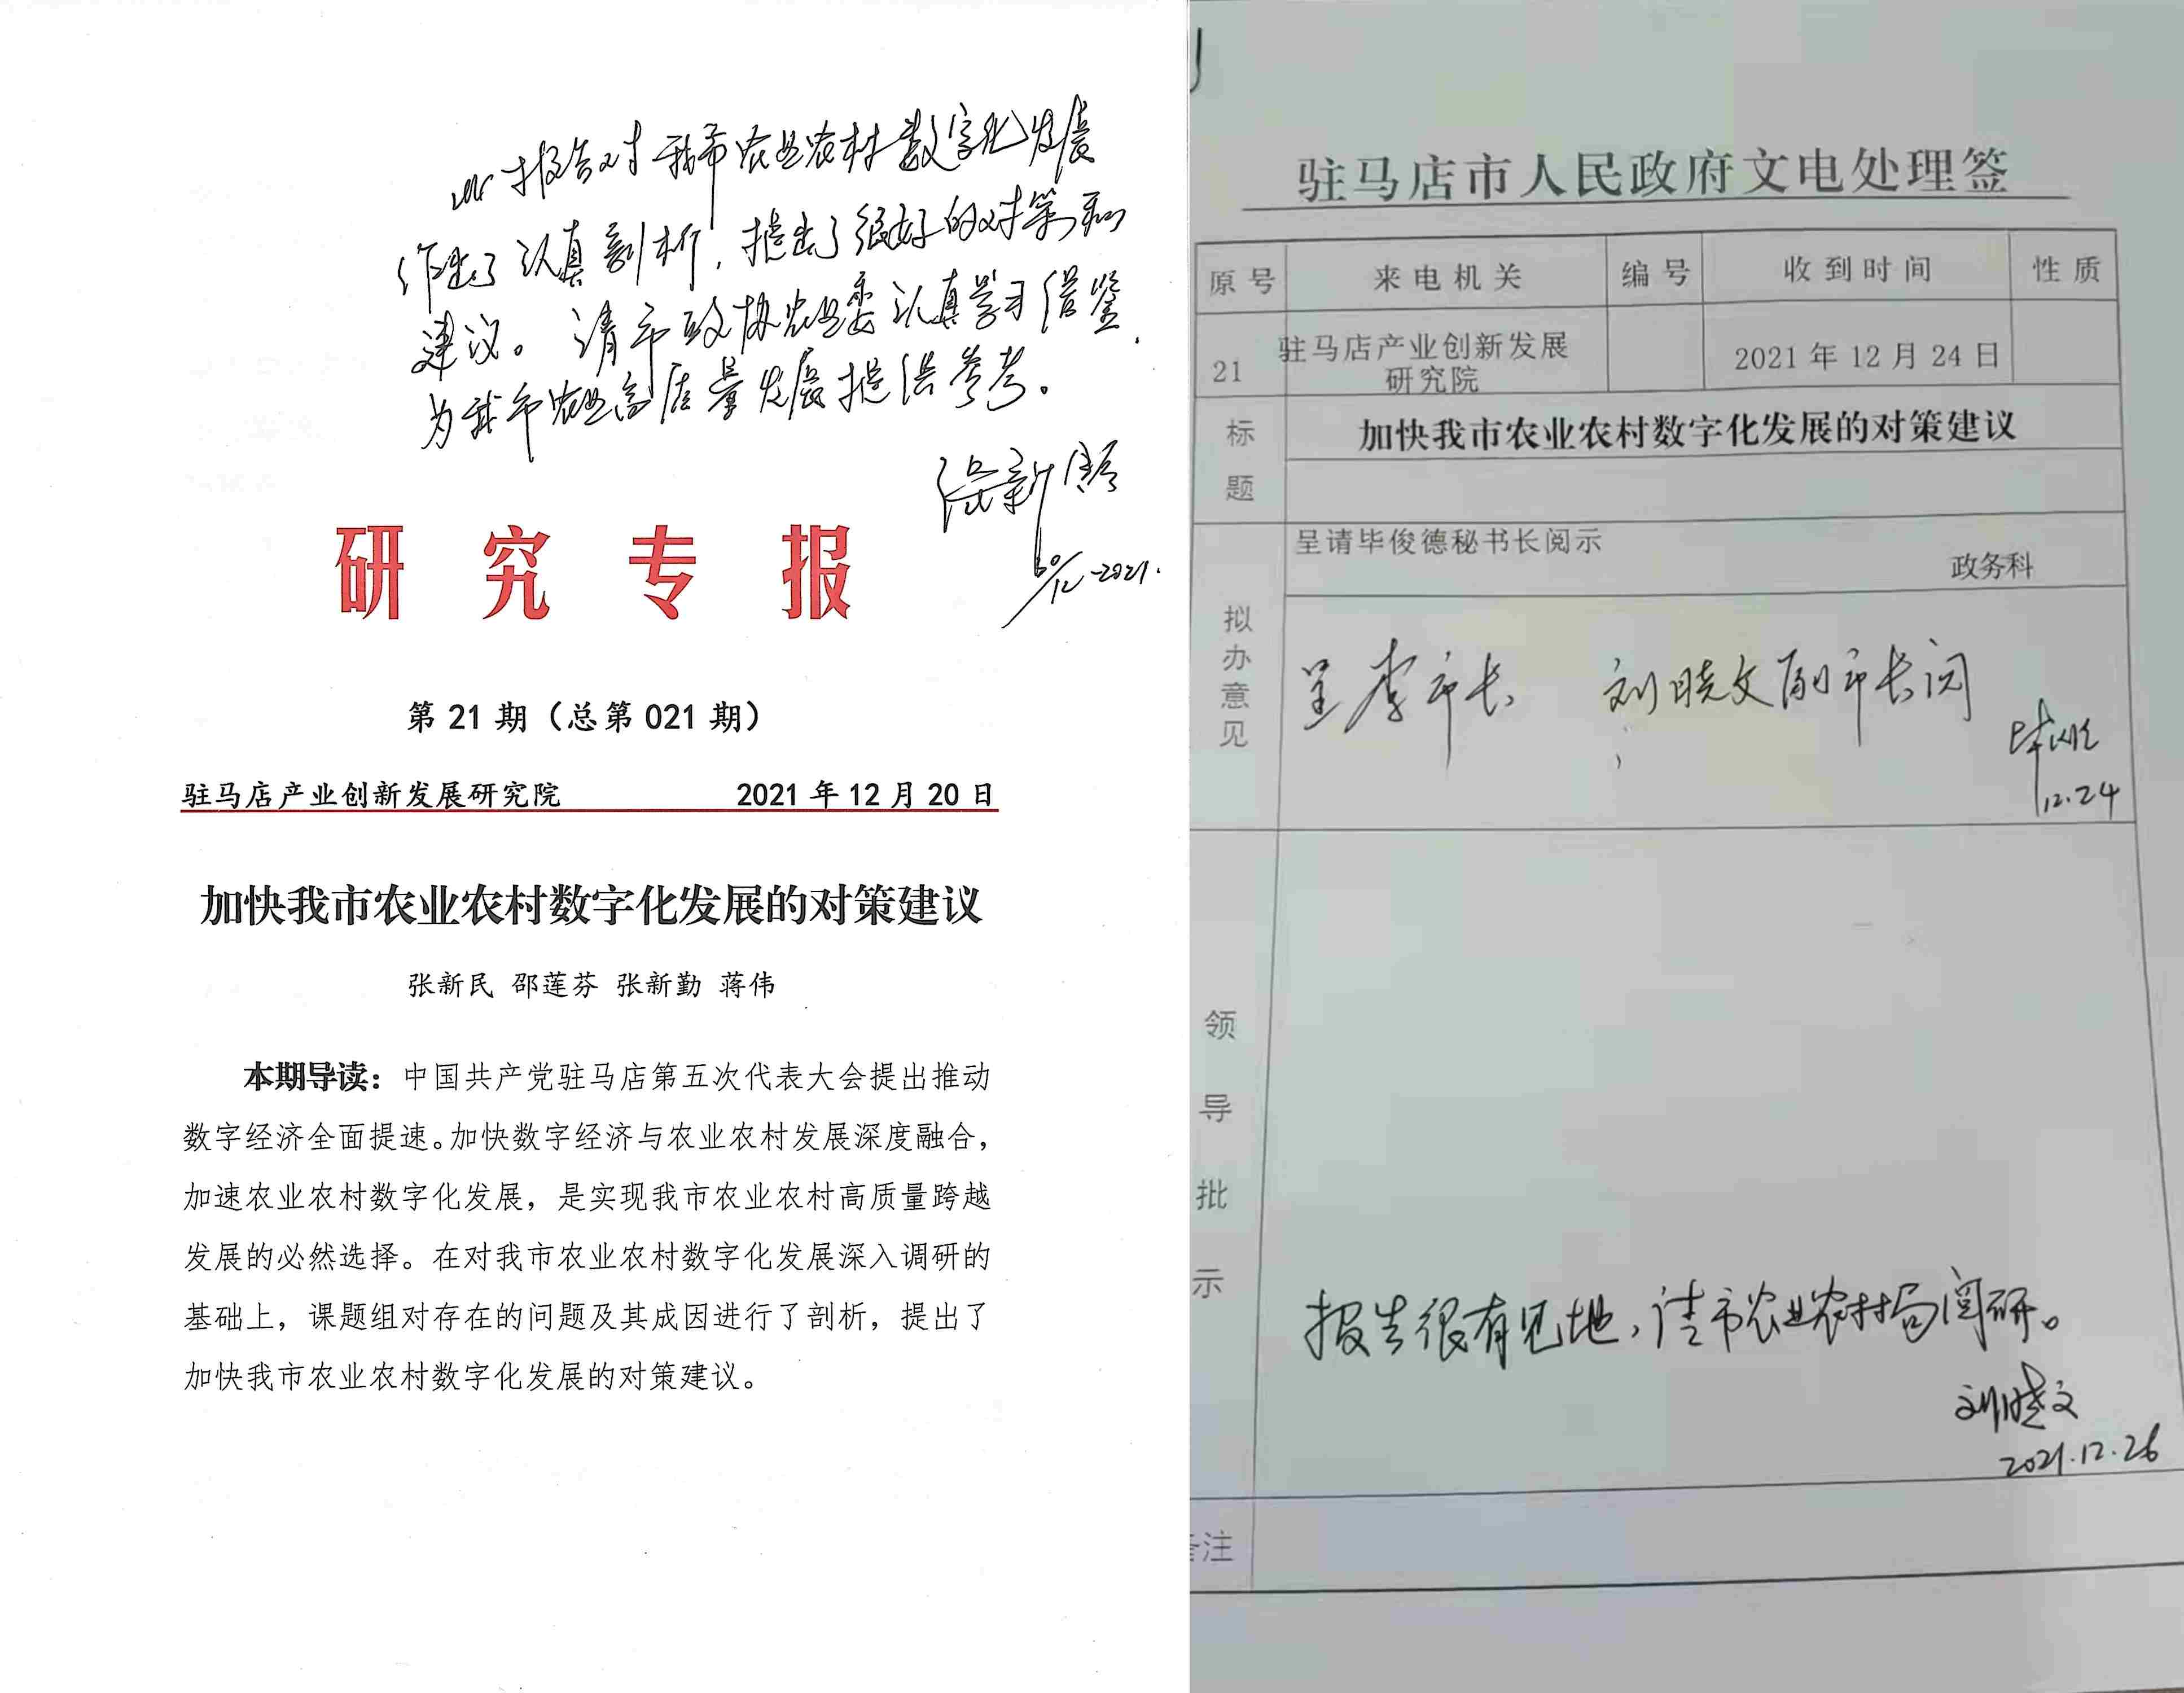 此报告对我市农业农村数字化发展
作出了认真剖析，提出了很好的对策和
建议。请市政协农业委认真学习借鉴，
为我市农业高质量发展提供参考。
30/12-2021.
研究专报
第 21 期（总第 021 期）
驻马店产业创新发展研究院 2021 年 12 月 20 日
加快我市农业农村数字化发展的对策建议
张新民 邵莲芬 张新勤 蒋伟
本期导读：中国共产党驻马店第五次代表大会提出推动
数字经济全面提速。加快数字经济与农业农村发展深度融合，
加速农业农村数字化发展，是实现我市农业农村高质量跨越
发展的必然选择。在对我市农业农村数字化发展深入调研的
基础上，课题组对存在的问题及其成因进行了剖析，提出了
加快我市农业农村数字化发展的对策建议。
驻马店市人民政府文电处理签
原号 来电机关 编号 收到时间 性质
21 驻马店产业创新发展
研究院 2021 年 12 月 24 日
标题 加快我市农业农村数字化发展的对策建议
呈请毕俊德秘书长阅示
政务科
拟办意见
呈李市长 刘晓文副市长阅
12.24
领导批示
报告很有见地，请市农业农村局阅研。
刘晓文
2021.12.26
备注